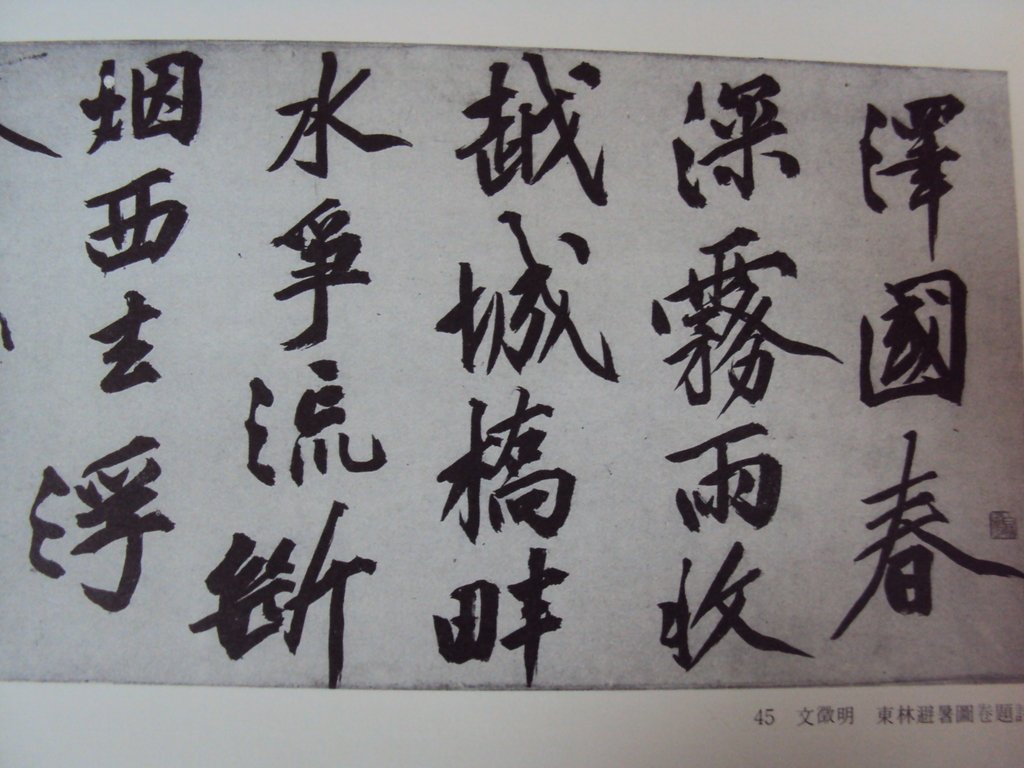 澤國春
深霧雨收
越城橋畔
水爭流斷
烟西去浮
45 文徵明 東林避暑圖卷題